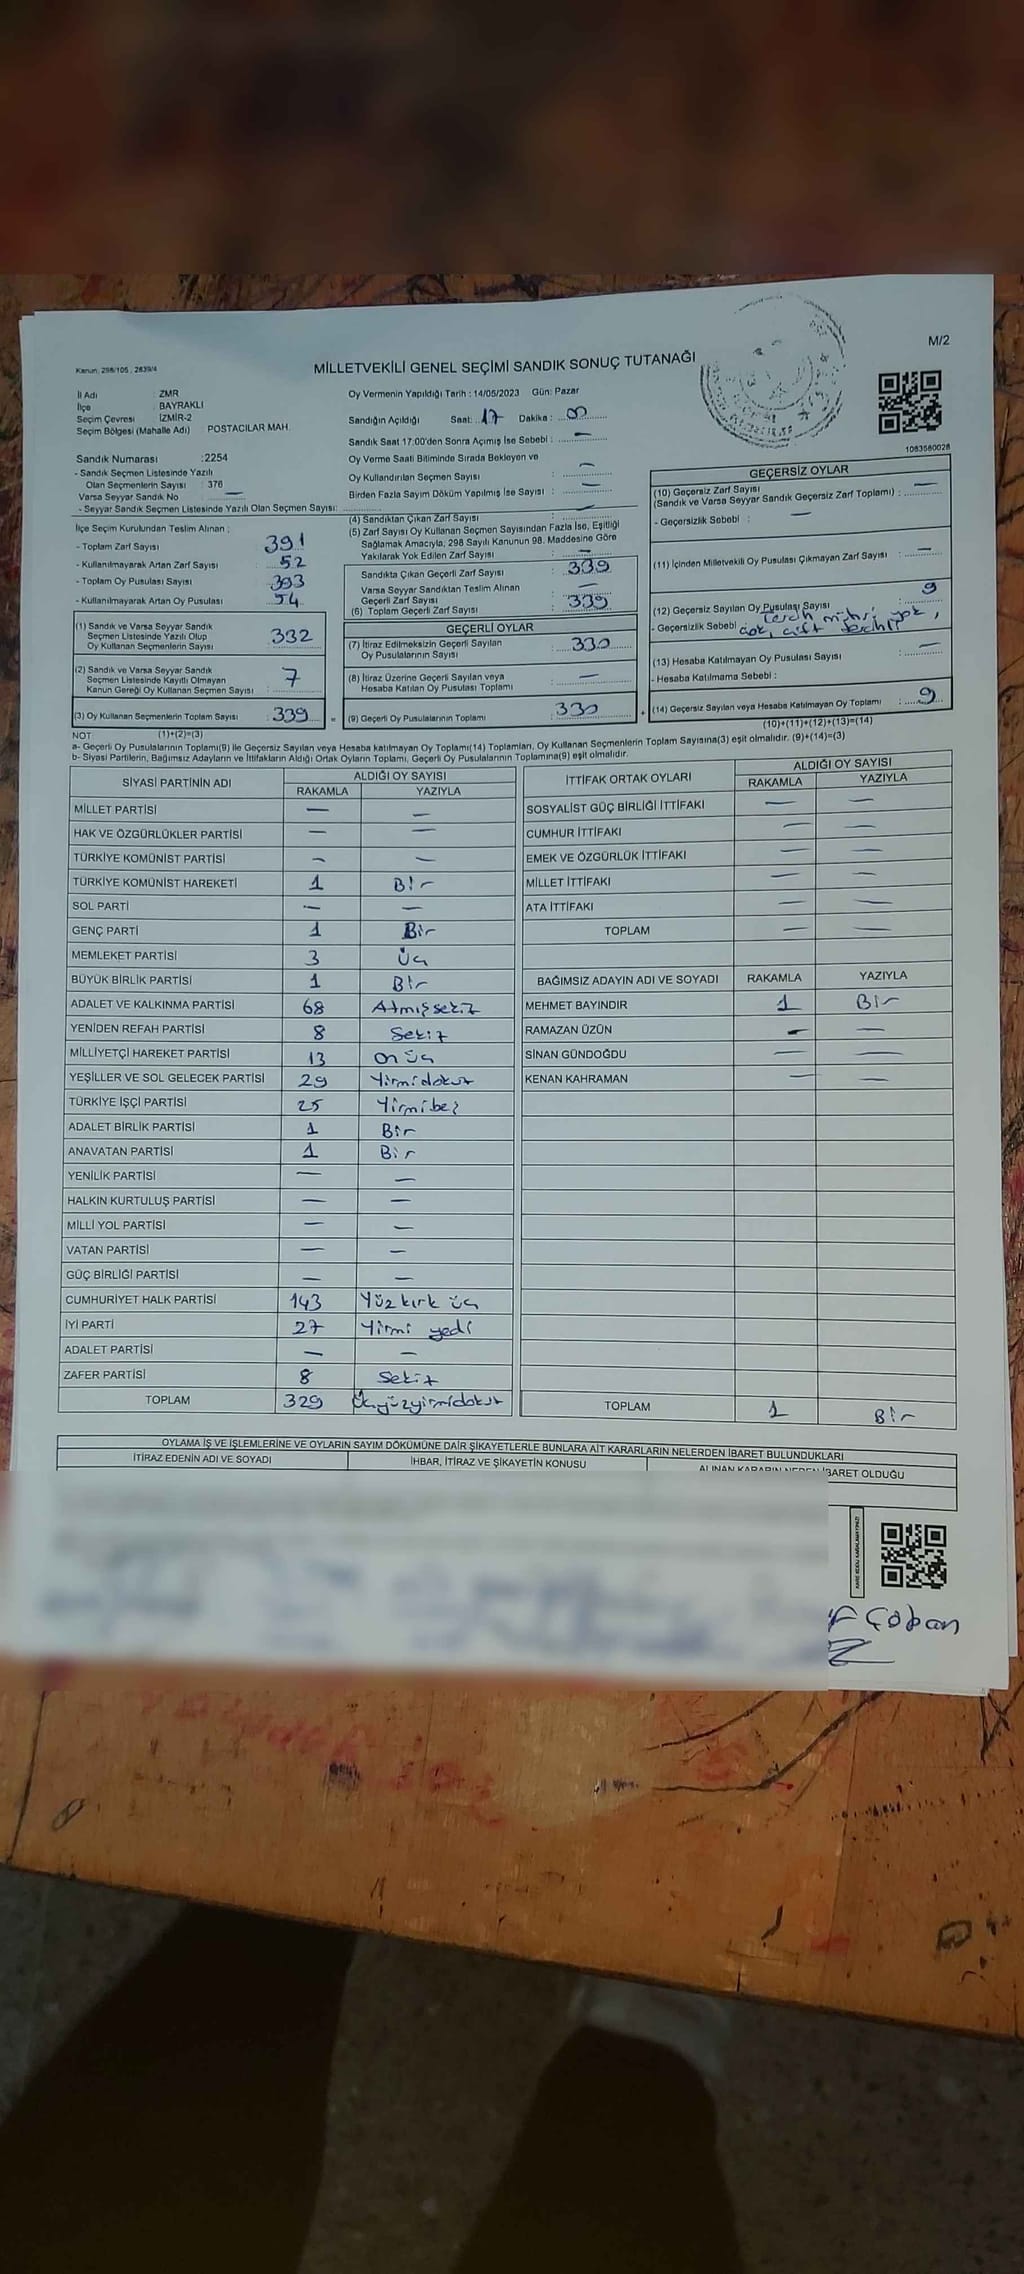 M/2
Kanun: 298/105 , 2839/4
MİLLETVEKİLİ GENEL SEÇİMİ SANDIK SONUÇ TUTANAĞI
İl Adı : ZMR
İlçe : BAYRAKLI
Seçim Çevresi : İZMİR-2
Seçim Bölgesi (Mahalle Adı) POSTACILAR MAH.
Sandık Numarası :2254
- Sandık Seçmen Listesinde Yazılı
Olan Seçmenlerin Sayısı : 376
Varsa Seyyar Sandık No —
- Seyyar Sandık Seçmen Listesinde Yazılı Olan Seçmen Sayısı:
İlçe Seçim Kurulundan Teslim Alınan :
- Toplam Zarf Sayısı 391
- Kullanılmayarak Artan Zarf Sayısı : 52
- Toplam Oy Pusulası Sayısı : 393
- Kullanılmayarak Artan Oy Pusulası : 54
(1) Sandık ve Varsa Seyyar Sandık
Seçmen Listesinde Yazılı Olup
Oy Kullanan Seçmenlerin Sayısı : 332
(2) Sandık ve Varsa Seyyar Sandık
Seçmen Listesinde Kayıtlı Olmayan
Kanun Gereği Oy Kullanan Seçmen Sayısı : 7
(3) Oy Kullanan Seçmenlerin Toplam Sayısı : 339
(1)+(2)=(3)
Oy Vermenin Yapıldığı Tarih : 14/05/2023 Gün: Pazar
Sandığın Açıldığı Saat: 17 Dakika : 00
Sandık Saat 17:00'den Sonra Açımış İse Sebebi : —
Oy Verme Saati Bitiminde Sırada Bekleyen ve
Oy Kullandırılan Seçmen Sayısı —
Birden Fazla Sayım Döküm Yapılmış İse Sayısı : —
(4) Sandıktan Çıkan Zarf Sayısı : —
(5) Zarf Sayısı Oy Kullanan Seçmen Sayısından Fazla İse, Eşitliği
Sağlamak Amacıyla, 298 Sayılı Kanunun 98. Maddesine Göre
Yakılarak Yok Edilen Zarf Sayısı : —
Sandıkta Çıkan Geçerli Zarf Sayısı : 339
Varsa Seyyar Sandıktan Teslim Alınan
Geçerli Zarf Sayısı : —
(6) Toplam Geçerli Zarf Sayısı : 339
GEÇERLİ OYLAR
(7) İtiraz Edilmeksizin Geçerli Sayılan
Oy Pusulalarının Sayısı : 330
(8) İtiraz Üzerine Geçerli Sayılan veya
Hesaba Katılan Oy Pusulası Toplamı : —
= (9) Geçerli Oy Pusulalarının Toplamı : 330
1083580028
GEÇERSİZ OYLAR
(10) Geçersiz Zarf Sayısı
(Sandık ve Varsa Seyyar Sandık Geçersiz Zarf Toplamı) : —
- Geçersizlik Sebebi : —
(11) İçinden Milletvekili Oy Pusulası Çıkmayan Zarf Sayısı : —
(12) Geçersiz Sayılan Oy Pusulası Sayısı : 9
- Geçersizlik Sebebi : Tercih mührü yok,
çok, çift tercihli
(13) Hesaba Katılmayan Oy Pusulası Sayısı : —
- Hesaba Katılmama Sebebi :
+ (14) Geçersiz Sayılan veya Hesaba Katılmayan Oy Toplamı : 9
(10)+(11)+(12)+(13)=(14)
NOT:
a- Geçerli Oy Pusulalarının Toplamı(9) ile Geçersiz Sayılan veya Hesaba katılmayan Oy Toplamı(14) Toplamları, Oy Kullanan Seçmenlerin Toplam Sayısına(3) eşit olmalıdır. (9)+(14)=(3)
b- Siyasi Partilerin, Bağımsız Adayların ve İttifakların Aldığı Ortak Oyların Toplamı, Geçerli Oy Pusulalarının Toplamına(9) eşit olmalıdır.
SİYASİ PARTİNİN ADI ALDIĞI OY SAYISI
RAKAMLA YAZIYLA
MİLLET PARTİSİ — —
HAK VE ÖZGÜRLÜKLER PARTİSİ — —
TÜRKİYE KOMÜNİST PARTİSİ — —
TÜRKİYE KOMÜNİST HAREKETİ 1 Bir
SOL PARTİ — —
GENÇ PARTİ 1 Bir
MEMLEKET PARTİSİ 3 Üç
BÜYÜK BİRLİK PARTİSİ 1 Bir
ADALET VE KALKINMA PARTİSİ 68 Atmışsekiz
YENİDEN REFAH PARTİSİ 8 Sekiz
MİLLİYETÇİ HAREKET PARTİSİ 13 on üç
YEŞİLLER VE SOL GELECEK PARTİSİ 29 Yirmidokuz
TÜRKİYE İŞÇİ PARTİSİ 25 Yirmibeş
ADALET BİRLİK PARTİSİ 1 Bir
ANAVATAN PARTİSİ 1 Bir
YENİLİK PARTİSİ — —
HALKIN KURTULUŞ PARTİSİ — —
MİLLİ YOL PARTİSİ — —
VATAN PARTİSİ — —
GÜÇ BİRLİĞİ PARTİSİ — —
CUMHURİYET HALK PARTİSİ 143 Yüz kırk üç
İYİ PARTİ 27 Yirmi yedi
ADALET PARTİSİ — —
ZAFER PARTİSİ 8 Sekiz
TOPLAM 329 Üçyüzyirmidokuz
İTTİFAK ORTAK OYLARI ALDIĞI OY SAYISI
RAKAMLA YAZIYLA
SOSYALİST GÜÇ BİRLİĞİ İTTİFAKI — —
CUMHUR İTTİFAKI — —
EMEK VE ÖZGÜRLÜK İTTİFAKI — —
MİLLET İTTİFAKI — —
ATA İTTİFAKI — —
TOPLAM — —
BAĞIMSIZ ADAYIN ADI VE SOYADI RAKAMLA YAZIYLA
MEHMET BAYINDIR 1 Bir
RAMAZAN ÜZÜN — —
SİNAN GÜNDOĞDU — —
KENAN KAHRAMAN — —
TOPLAM 1 Bir
OYLAMA İŞ VE İŞLEMLERİNE VE OYLARIN SAYIM DÖKÜMÜNE DAİR ŞİKAYETLERLE BUNLARA AİT KARARLARIN NELERDEN İBARET BULUNDUKLARI
İTİRAZ EDENİN ADI VE SOYADI İHBAR, İTİRAZ VE ŞİKAYETİN KONUSU ALINAN KARARIN NEDEN İBARET OLDUĞU
Çoban